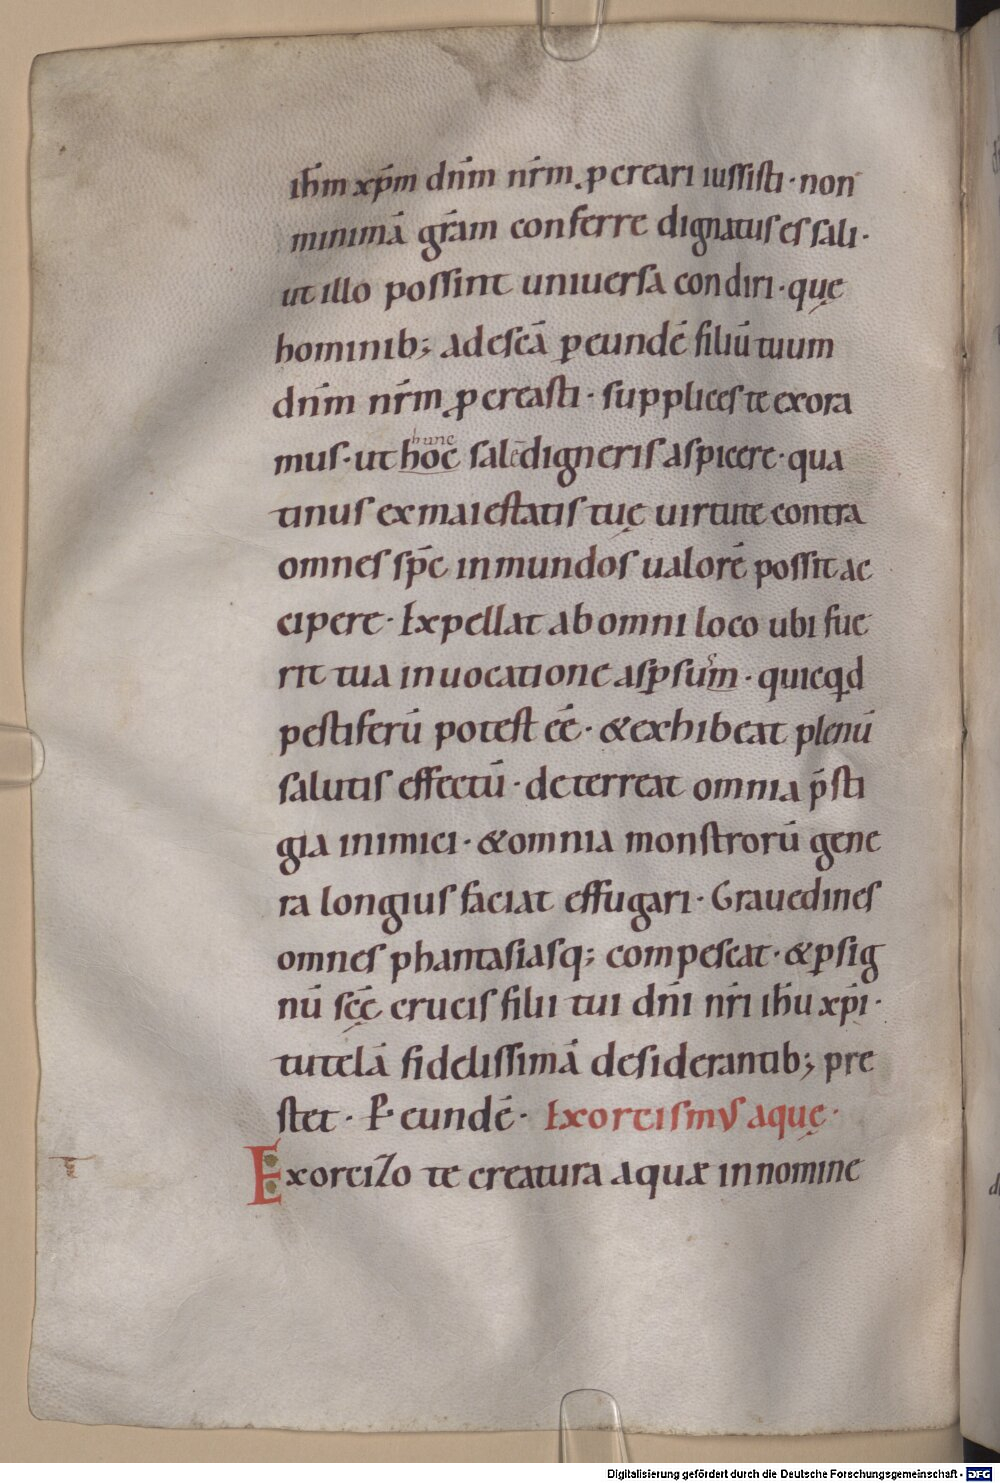 ihm̄ xp̄m dn̄m nr̄m. ꝓcreari iussisti · non
minimā grām conferre dignatus es sali ·
ut illo possint uniuersa condiri · quę
hominib; ad escā ꝑ eundē filiū tuum
dn̄m nr̄m ꝓcreasti · supplices te exora
mus · ut hoc hunc salē digneris aspicere · qua
tinus ex maiestatis tuę uirtute contra
omnes sp̄c inmundos ualorē possit ac
cipere · Expellat ab omni loco ubi fue
rit tua inuocatione aspsum · quicqd
pestiferū potest eē · & exhibeat plenū
salutis effectū · deterreat omnia p̄sti
gia inimici · & omnia monstrorū gene
ra longius faciat effugari · Grauedines
omnes phantasiasq; compescat · & ꝑ sig
nū sc̄ę crucis filii tui dn̄i nr̄i ihū xp̄i ·
tutelā fidelissimā desiderantib; pre
stet · P̄ eundē · Exorcismus aquę ·
Exorcizo te creatura aquæ in nomine
Digitalisierung gefördert durch die Deutsche Forschungsgemeinschaft - DFG